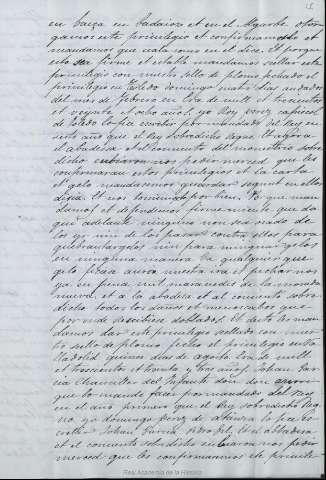 en baeça en badaioz et en el Algarbe otor
gamos este privilegio et confirmamoslo et
mandamos que uala como en el dice. Et porque
esto sea firme et estable mandamos seellar este
privilegio con nuestro sello de plomo fechado el
privilegio en Toledo domingo dias andados
del mes de febrero en Era de mill et trecientos
et veynte et ocho años. yo Roy perez
de Toledo lo fiz escrebir por mandado del Rey en
año que el Rey sobredicho regnó. Et agora
el abadesa et el convento del monesterio sobre
dicho enbiaron nos pedir merced que les
confirmasemos estos privilegios et la carta
et gelo mandasemos guardar segunt en ellos
dicia. Et nos tovimoslo por bien. Et que man
damos et defendemos firmemente que da
qui adelante ninguno non sea osado de
les yr nin de les pasar contra ellos para
quebrantargelos nin para minguargelos
en ninguna manera Ca qualquier que
gelo ficiese aurie nuestra ira et pecharnos
ya en pena mill maravedis de la moneda
nueva, et a la abadesa et al convento sobre
dicho todos los daños et menoscabos que
por ende rescibiesen doblados. Et desto les man
damos dar este privilegio seellado con nues
tro sello de plomo fecho el privilegio en Va
lladolid quince dias de agosto Era de mill
et trecientos et treinta y tres años. Johan Gar
cia Chanceller del Infante don
que lo mandó facer por mandado del Rey
en el año primero que el Rey sobredicho Reg
nó yo domingo perez de atienza lo fice es
crebir Johan Garcia. Et el abadesa
et el convento sobredicho enbiaron nos pedir
merced que les confirmasemos este privile
Real Academia de la Historia